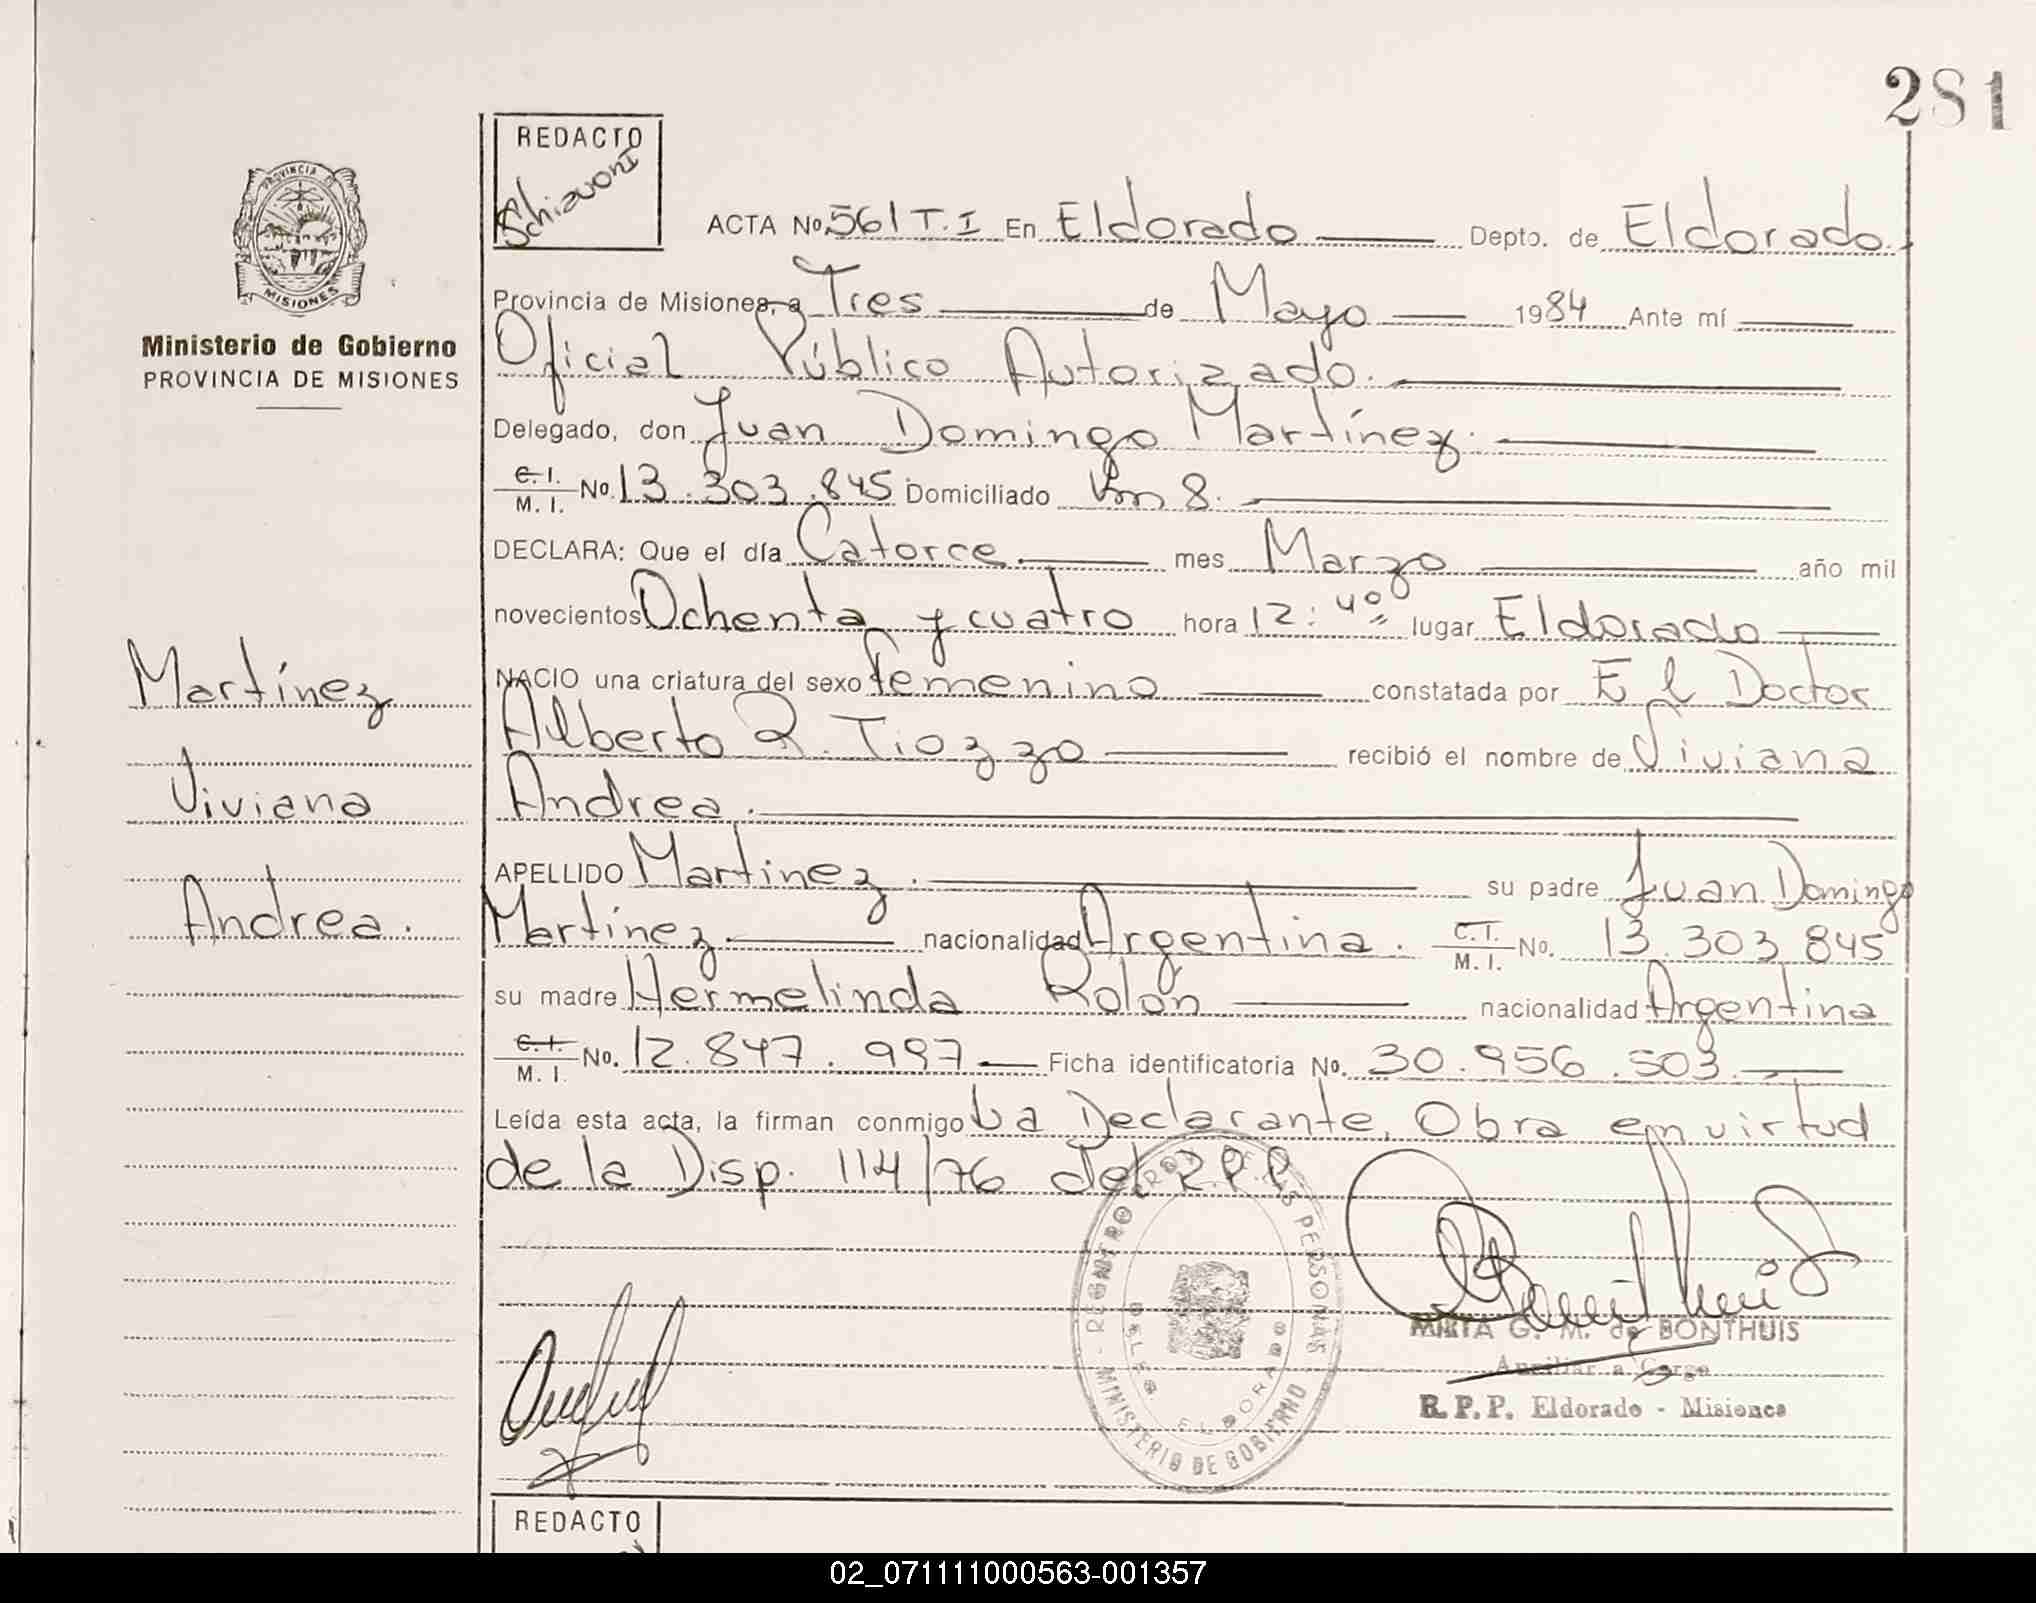 281
REDACTO
Schiavoni
PROVINCIA DE
MISIONES
Ministerio de Gobierno
PROVINCIA DE MISIONES
ACTA No. 561 T. I En Eldorado Depto. de Eldorado.
Provincia de Misiones, a Tres de Mayo 1984 Ante mí
Oficial Público Autorizado.
Delegado, don Juan Domingo Martínez.
C. I. / M. I. No. 13.303.845 Domiciliado Km 8.
DECLARA: Que el día Catorce mes Marzo año mil
novecientos Ochenta y cuatro hora 12:40 lugar Eldorado
NACIO una criatura del sexo femenino constatada por El Doctor
Alberto R. Tiozzo recibió el nombre de Viviana
Andrea.
APELLIDO Martinez. su padre Juan Domingo
Martínez nacionalidad Argentina. C.I. / M. I. No. 13.303.845
su madre Hermelinda Rolón nacionalidad Argentina
C. I. / M. I. No. 12.847.997 Ficha identificatoria No. 30.956.503.
Leída esta acta, la firman conmigo La Declarante, Obra en virtud
de la Disp. 114/76 del R.P.P.
Martínez
Viviana
Andrea.
MINISTERIO DE GOBIERNO
PERSONAS
ELDORADO
MIRTA G. M. de BONTHUIS
Auxiliar a Cargo
R. P. P. Eldorado - Misiones
REDACTO
02_071111000563-001357